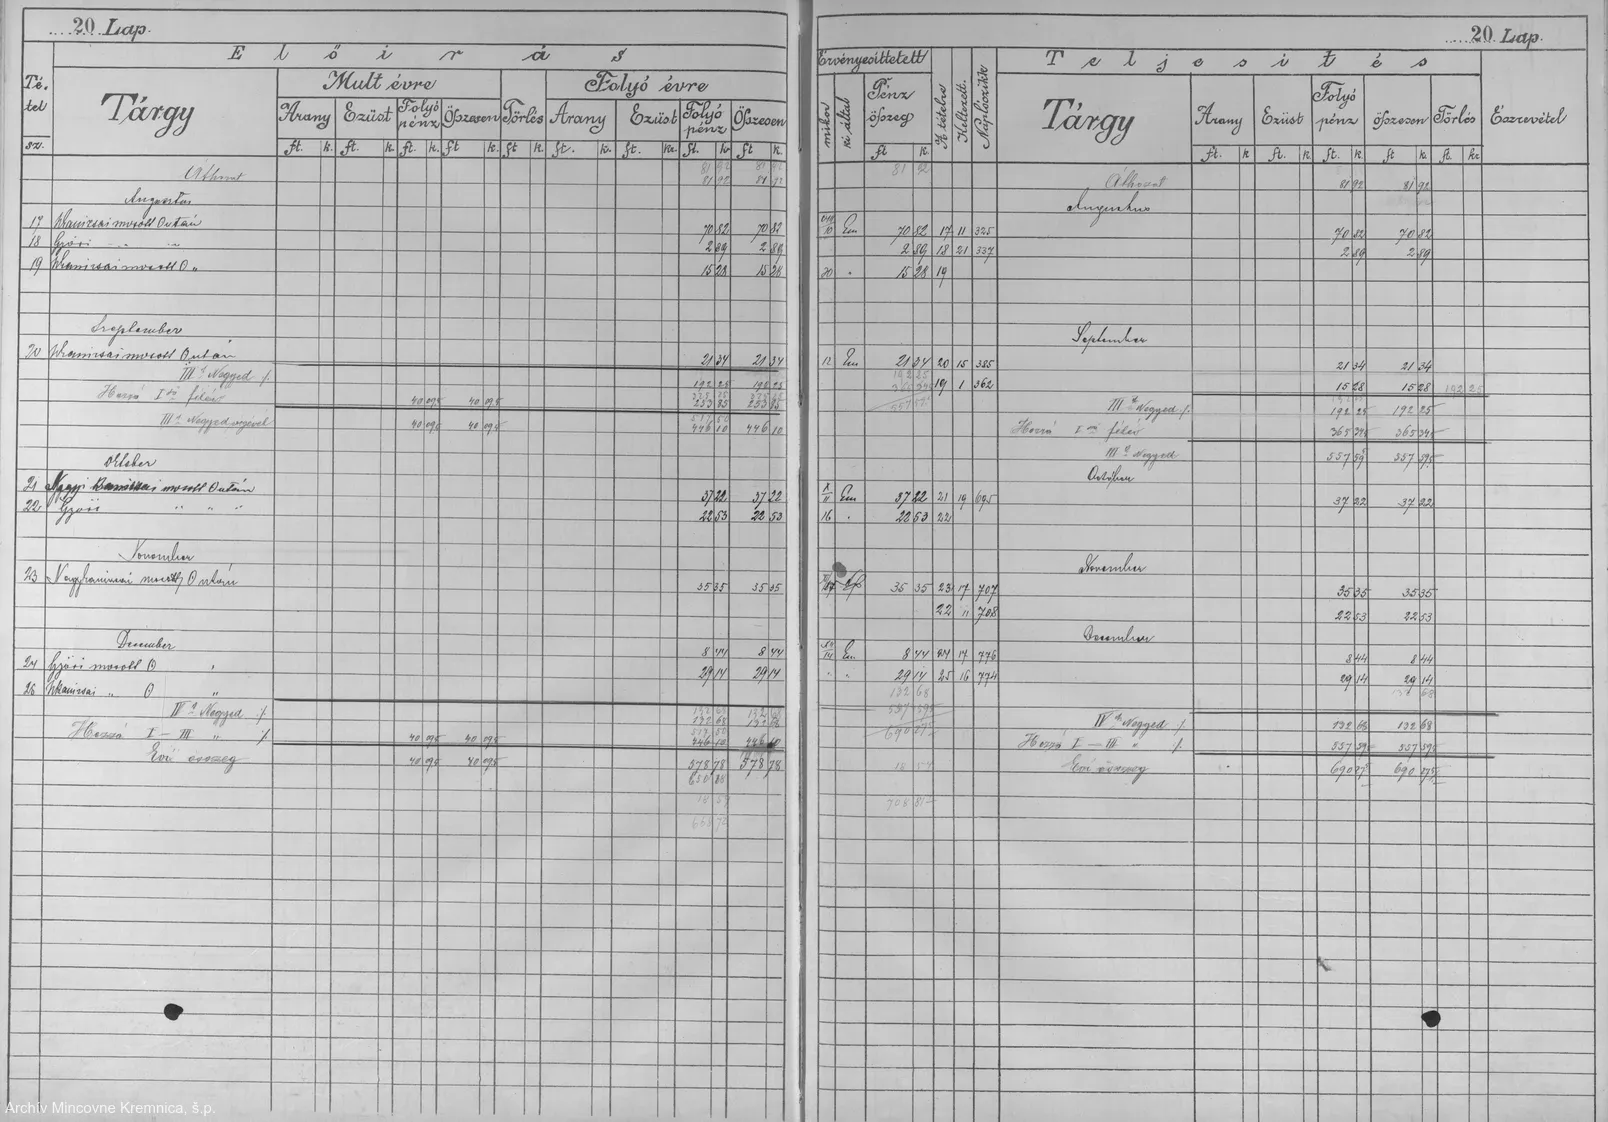 20 Lap.
Előirás
Té-
tel
sz.
Tárgy
Mult évre
Folyó évre
Arany Ezüst Folyó pénz Öszesen Törlés Arany Ezüst Folyó pénz Öszesen
ft. k. ft. k. ft. k. ft k. ft k. ft. k. ft. kr. ft. kr ft k
Áthozat 81 92 81 92
81 92 81 92
Augustus
17 Wkanizsai mosott Ón után 70 82 70 82
18 Győri " " 2 89 2 89
19 Wkanizsai mosott Ó " 15 28 15 28
Szeptember
20 Wkanizsai mosott Ón után 21 34 21 34
III Negyed 192 25 192 25
Hozzá I ső félév 40 095 40 095 253 85 253 85
III Negyed végével 40 095 40 095 446 10 446 10
Oktober
21 mosott Ón után 37 22 37 22
22 Győri " " " 22 53 22 53
November
23 Nagykanizsai mosott Ón után 35 35 35 35
December 8 44 8 44
24 Győri mosott Ó " 29 14 29 14
26 Wkanizsai " Ó "
IV Negyed 132 68 132 68
Hozzá I – III " 40 095 40 095 446 10 446 10
Évi összeg 40 095 40 095 578 78 578 78
18 59
20 Lap.
Teljesités
Érvényesíttetett
mikor
ki által
Pénz összeg
A tételre
Keltezett.
Naplószikk
Tárgy
Arany Ezüst Folyó pénz Öszesen Törlés Észrevétel
ft k. ft. k ft. k ft. k. ft k ft. kr
81 92
Áthozat 81 92 81 92
Augustus
10 Em 70 82 17 11 325 70 82 70 82
2 89 18 21 337 2 89 2 89
20 " 15 28 19
September
12 Em 21 34 20 15 385 21 34 21 34
19 1 362 15 28 15 28 192 25
III Negyed 192 25 192 25
Hozzá I ső félév 365 345 365 345
III Negyed 557 595 557 595
October
X 11 Em 37 22 21 19 695 37 22 37 22
16 " 22 53 22
November
35 35 23 17 707 35 35 35 35
22 11 708 22 53 22 53
December
14 Em 8 44 24 17 776 8 44 8 44
" " 29 14 25 16 774 29 14 29 14
132 68
IV Negyed 132 68 132 68
Hozzá I – III " 557 595 557 595
Évi összeg 690 275 690 275
Archív Mincovne Kremnica, š.p.